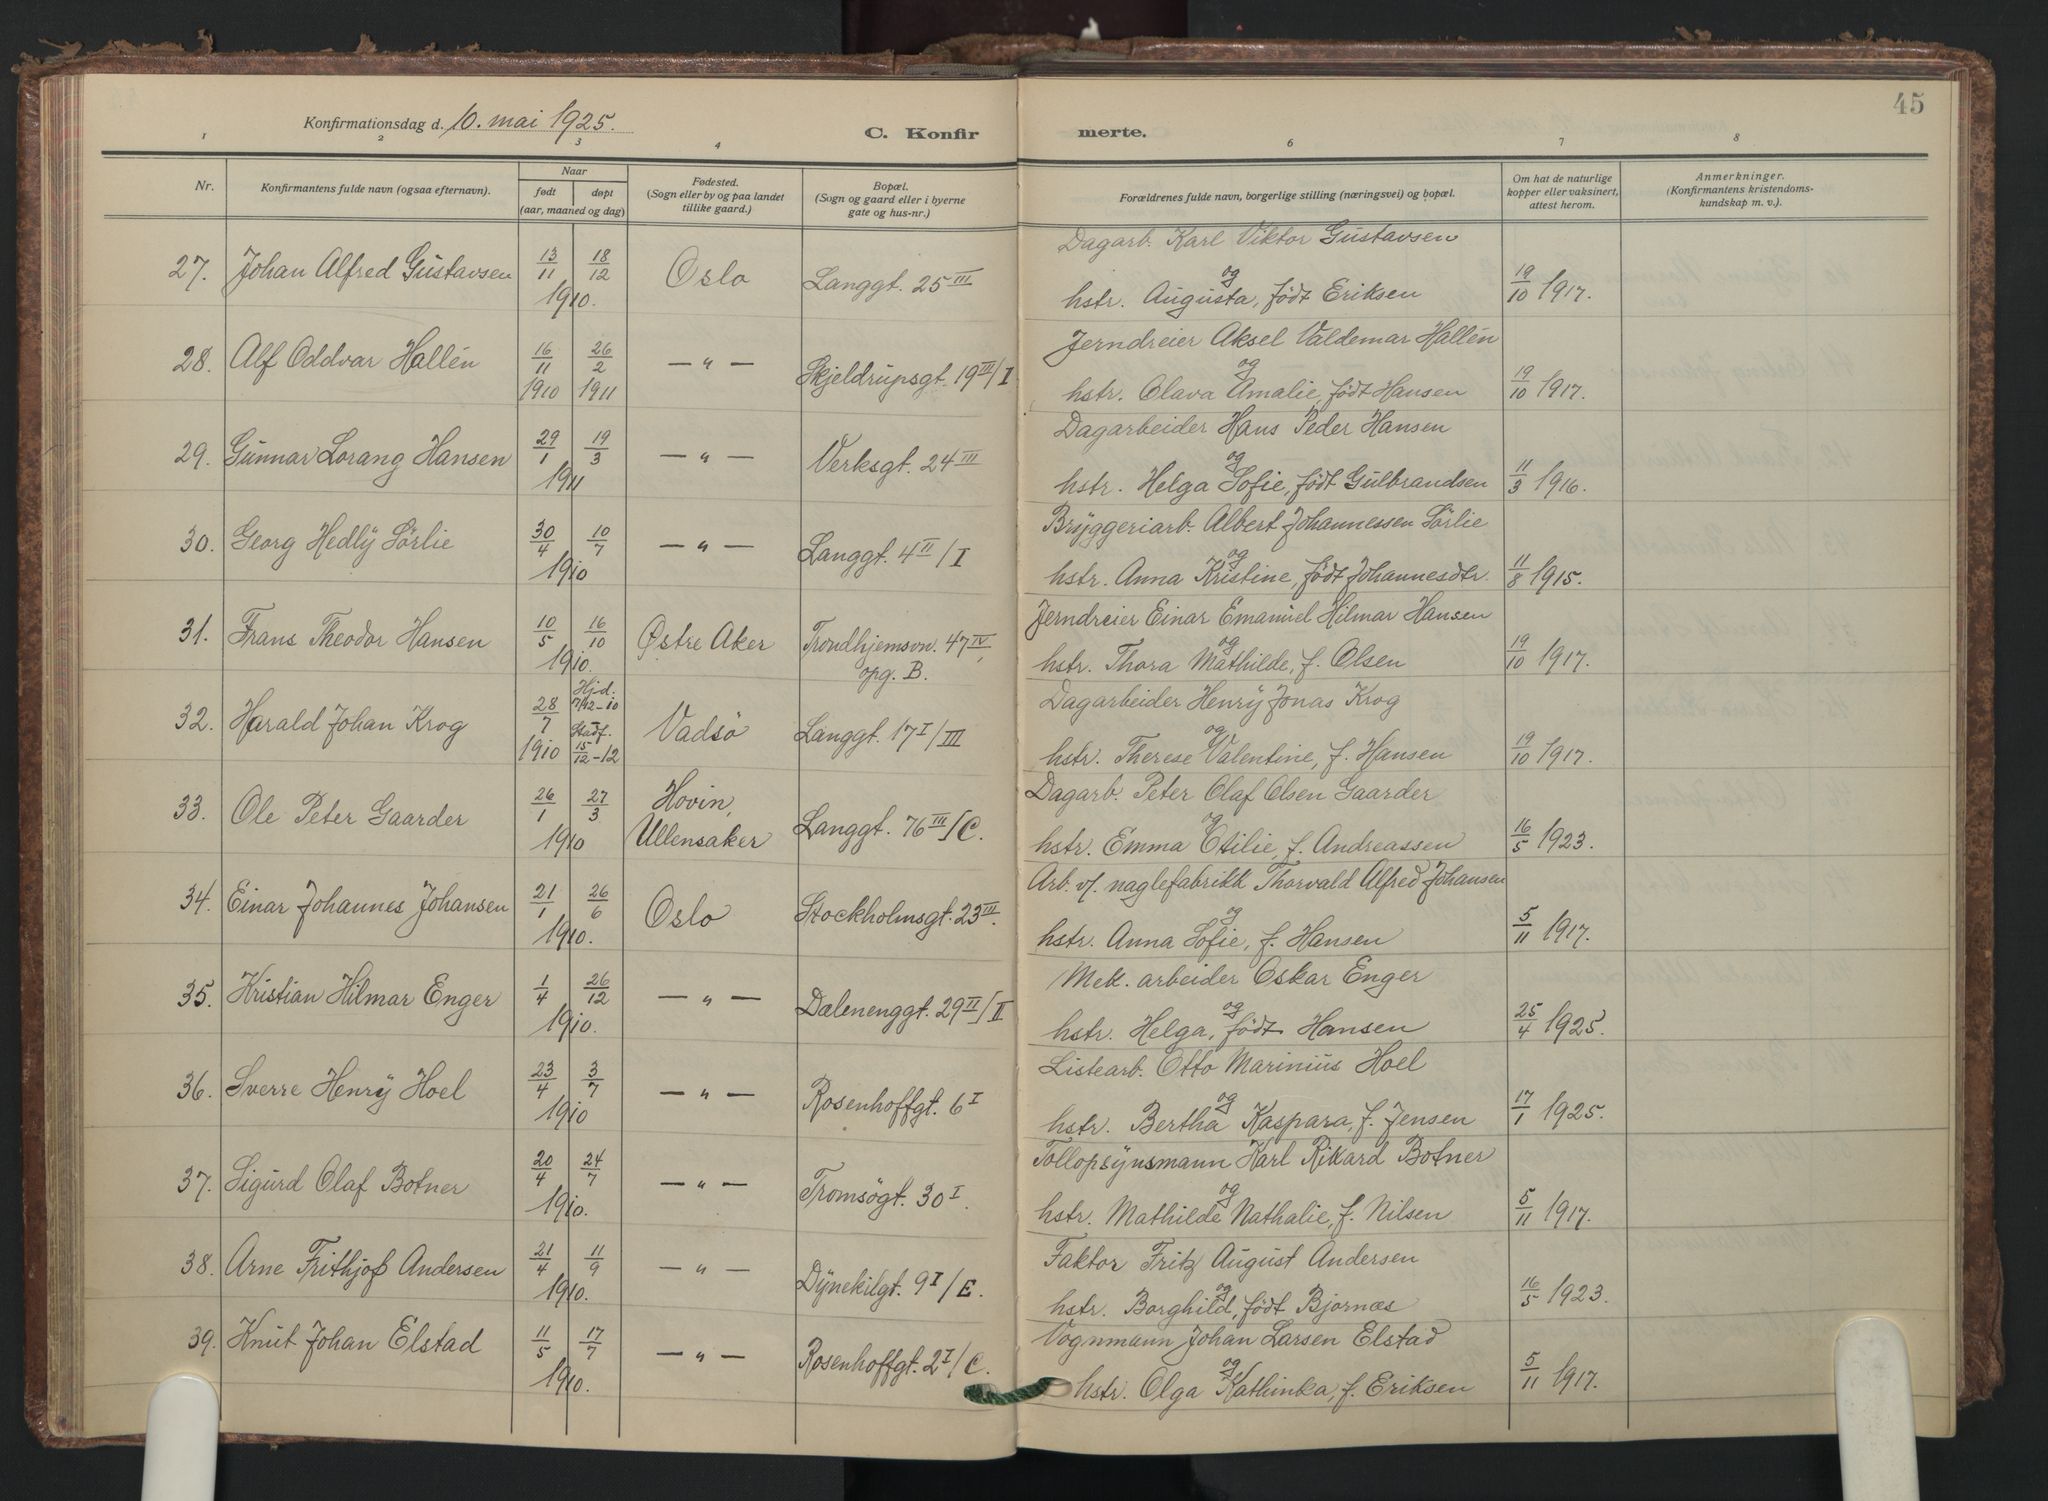 45
Konfirmationsdag d. 10. mai 1925.
C. Konfir merte.
1 2 3 4 6 7 8
Nr.
Konfirmantens fulde navn (ogsaa efternavn).
Naar
født døpt
(aar, maaned og dag)
Fødested.
(Sogn eller by og paa landet
tillike gaard.)
Bopæl.
(Sogn og gaard eller i byerne
gate og hus-nr.)
Forældrenes fulde navn, borgerlige stilling (næringsvei) og bopæl.
Om hat de naturlige
kopper eller vaksinert,
attest herom.
Anmerkninger.
(Konfirmantens kristendoms-
kundskap m. v.)
27. Johan Alfred Gustavsen 13/11 18/12 1910. Oslo Langgt. 25 III
Dagarb. Karl Viktor Gustavsen
og
hstr. Augusta, født Eriksen 19/10 1917.
28. Alf Oddvar Hallén 16/11 1910 26/2 1911 — „ — Skjeldrupsgt. 19 III/I
Jerndreier Aksel Valdemar Hallén
og
hstr. Olava Amalie, født Hansen 19/10 1917.
29. Gunnar Lorang Hansen 29/1 19/3 1911 — „ — Verksgt. 24 III
Dagarbeider Hans Peder Hansen
og
hstr. Helga Sofie, født Gulbrandsen 11/3 1916.
30. Georg Hedly Sörlie 30/4 10/7 1910 — „ — Langgt. 4 II/I
Bryggeriarb. Albert Johannessen Sörlie
og
hstr. Anna Kristine, født Johannesdtr. 11/8 1915.
31. Frans Theodor Hansen 10/5 16/10 1910. Østre Aker Trondhjemsvn. 47 IV,
opg. B.
Jerndreier Einar Emanuel Hilmar Hansen
og
hstr. Thora Mathilde, f. Olsen 19/10 1917.
32. Harald Johan Krog 28/7 1910 Hjd. 7/92-10 Stadf. 15/12-12 Vadsö Langgt. 17 I/III
Dagarbeider Henry Jonas Krog
og
hstr. Therese Valentine, f. Hansen 19/10 1917.
33. Ole Peter Gaarder 26/1 27/3 1910 Hovin,
Ullensaker Langgt. 76 III/C.
Dagarb. Peter Olaf Olsen Gaarder
og
hstr. Emma Otilie, f. Andreassen 16/5 1923.
34. Einar Johannes Johansen 21/1 26/6 1910. Oslo Stockholmsgt. 23 III.
Arb. v/. naglefabrikk Thorvald Alfred Johansen
og
hstr. Anna Sofie, f. Hansen 5/11 1917.
35. Kristian Hilmar Enger 1/4 26/12 1910. — „ — Dælenenggt. 29 II/II
Mek. arbeider Oskar Enger
og
hstr. Helga, født Hansen 25/4 1925.
36. Sverre Henry Hoel 23/4 3/7 1910 — „ — Rosenhoffgt. 6 I
Listearb. Otto Marinius Hoel
og
hstr. Bertha Kaspara, f. Jensen 17/1 1925.
37. Sigurd Olaf Botner 20/4 24/7 1910. — „ — Tromsögt. 30 I.
Tollopsynsmann Karl Rikard Botner
og
hstr. Mathilde Nathalie, f. Nilsen 5/11 1917.
38. Arne Frithjof Andersen 21/4 11/9 1910. — „ — Dynekilgt. 9 I/E.
Faktor Fritz August Andersen
og
hstr. Borghild, født Bjornæs 16/5 1923.
39. Knut Johan Elstad 11/5 17/7 1910. — „ — Rosenhoffgt. 2 I/C.
Vognmann Johan Larsen Elstad
og
hstr. Olga Kathinka, f. Eriksen 5/11 1917.